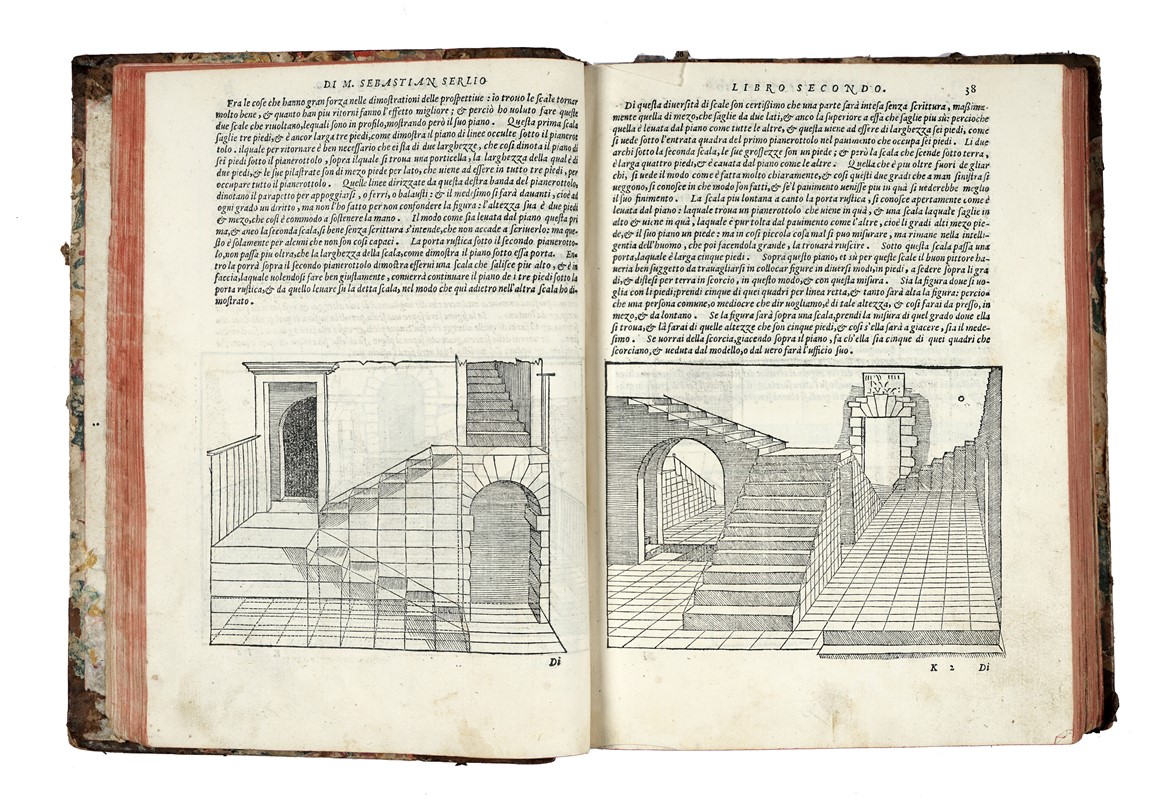 DI M. SEBASTIAN SERLIO
Fra le cose che hanno gran forza nelle dimostrationi delle prospettiue: io trouo le scale tornar
molto bene, & quanto han piu ritorni fanno l'effetto migliore; & perciò ho uoluto fare queste
due scale che riuoltano, lequali sono in profilo, mostrando però il suo piano. Questa prima scala
saglie tre piedi, & è ancor larga tre piedi, come dimostra il piano di linee occulte sotto il pianerot
tolo. ilquale per ritornare è ben necessario che ei sia di due larghezze, che così dinota il piano di
sei piedi sotto il pianerottolo, sopra ilquale si troua una porticella, la larghezza della qual è di
due piedi, & le sue pilastrate son di mezo piede per lato, che uiene ad essere in tutto tre piedi, per
occupare tutto il pianerottolo. Quelle linee dirizzate da questa destra banda del pianerottolo,
dinotano il parapetto per appoggiarsi, o ferri, o balausti: & il medesimo si farà dauanti, cioè ad
ogni grado un diritto, ma non l'ho fatto per non confondere la figura: l'altezza sua è due piedi
& mezo, che così è commodo a sostenere la mano. Il modo come sia leuata dal piano questa pri
ma, & anco la seconda scala, si bene senza scrittura s'intende, che non accade a scriuerlo: ma que-
sto è solamente per alcuni che non son così capaci. La porta rustica sotto il secondo pianerotto-
lo, non passa piu oltra, che la larghezza della scala, come dimostra il piano sotto essa porta. En-
tro la porta sopra il secondo pianerottolo dimostra esserui una scala che salisce piu alto, & è in
faccia, laquale uolendosi fare ben giustamente, conuerrà continuare il piano de i tre piedi sotto la
porta rustica, & da quello leuare su la detta scala, nel modo che qui adietro nell'altra scala ho di-
mostrato.
Di
LIBRO SECONDO. 38
Di questa diuersità di scale son certissimo che una parte sarà intesa senza scrittura, maßima-
mente quella di mezo, che saglie da due lati, & anco la superiore a essa che saglie piu sù: percioche
quella è leuata dal piano come tutte le altre, & questa uiene ad essere di larghezza sei piedi, come
si uede sotto l'entrata quadra del primo pianerottolo nel pauimento che occupa sei piedi. Li due
archi sotto la seconda scala, le sue grossezze son un piede; & però la scala che scende sotto terra,
è larga quattro piedi, & è cauata dal piano come le altre. Quella che è piu oltre fuori de gli ar
chi, si uede il modo come è fatta molto chiaramente, & così questi due gradi che a man sinistra si
ueggono, si conosce in che modo son fatti, & se'l pauimento uenisse piu in quà si uederebbe meglio
il suo finimento. La scala piu lontana a canto la porta rustica, si conosce apertamente come è
leuata dal piano: laquale troua un pianerottolo che uiene in quà, & una scala laquale saglie in
alto & uiene in quà, laquale è pur tolta dal pauimento come l'altre, cioè li gradi alti mezo pie-
de, & il suo piano un piede: ma in così piccola cosa mal si puo misurare, ma rimane nella intelli-
gentia dell'huomo, che poi facendola grande, la trouarà riuscire. Sotto questa scala passa una
porta, laquale è larga cinque piedi. Sopra questo piano, et sù per queste scale il buon pittore ha-
ueria ben suggetto da trauagliarsi in collocar figure in diuersi modi, in piedi, a sedere sopra li gra
di, & distesi per terra in scorcio, in questo modo, & con questa misura. Sia la figura doue si uo-
glia con li piedi; prendi cinque di quei quadri per linea retta, & tanto sarà alta la figura: percio-
che una persona comune, o mediocre che dir uogliamo, è di tale altezza, & così farai da presso, in
mezo, & da lontano. Se la figura sarà sopra una scala, prendi la misura di quel grado doue ella
si troua, & là farai di quelle altezze che son cinque piedi, & così s'ella sarà a giacere, sia il mede-
simo. Se uorrai della scorcia, giacendo sopra il piano, fa ch'ella sia cinque di quei quadri che
scorciano, & ueduta dal modello, o dal uero farà l'ufficio suo.
K 2 Di